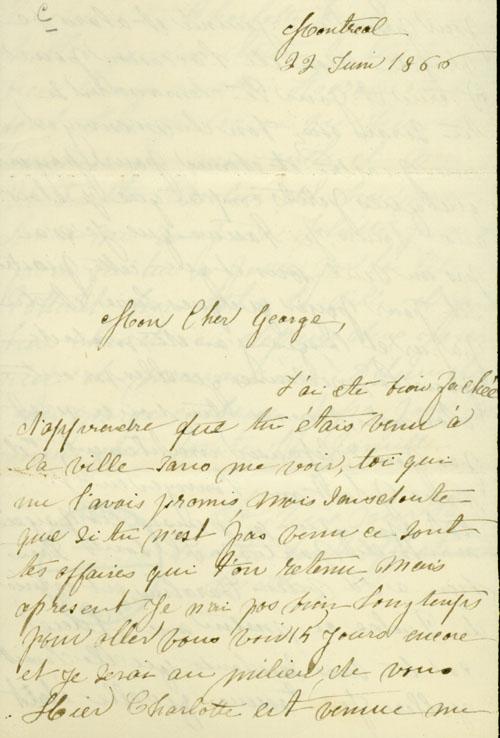 C
Montreal
22 Juin 1866
Mon Cher George,
J'ai ete bien fachée
d'apprendre que tu étais venu à
la ville sans me voir, toi qui
me l'avais promis, mais sans doute
que si tu n'est pas venu ce sont
tes affaires qui t'on retenu mais
apresent Je n'ai pas bien longtemps
pour aller vous voir 15 jours encore
et Je serai au milieu de vous
Hier Charlotte est venue me